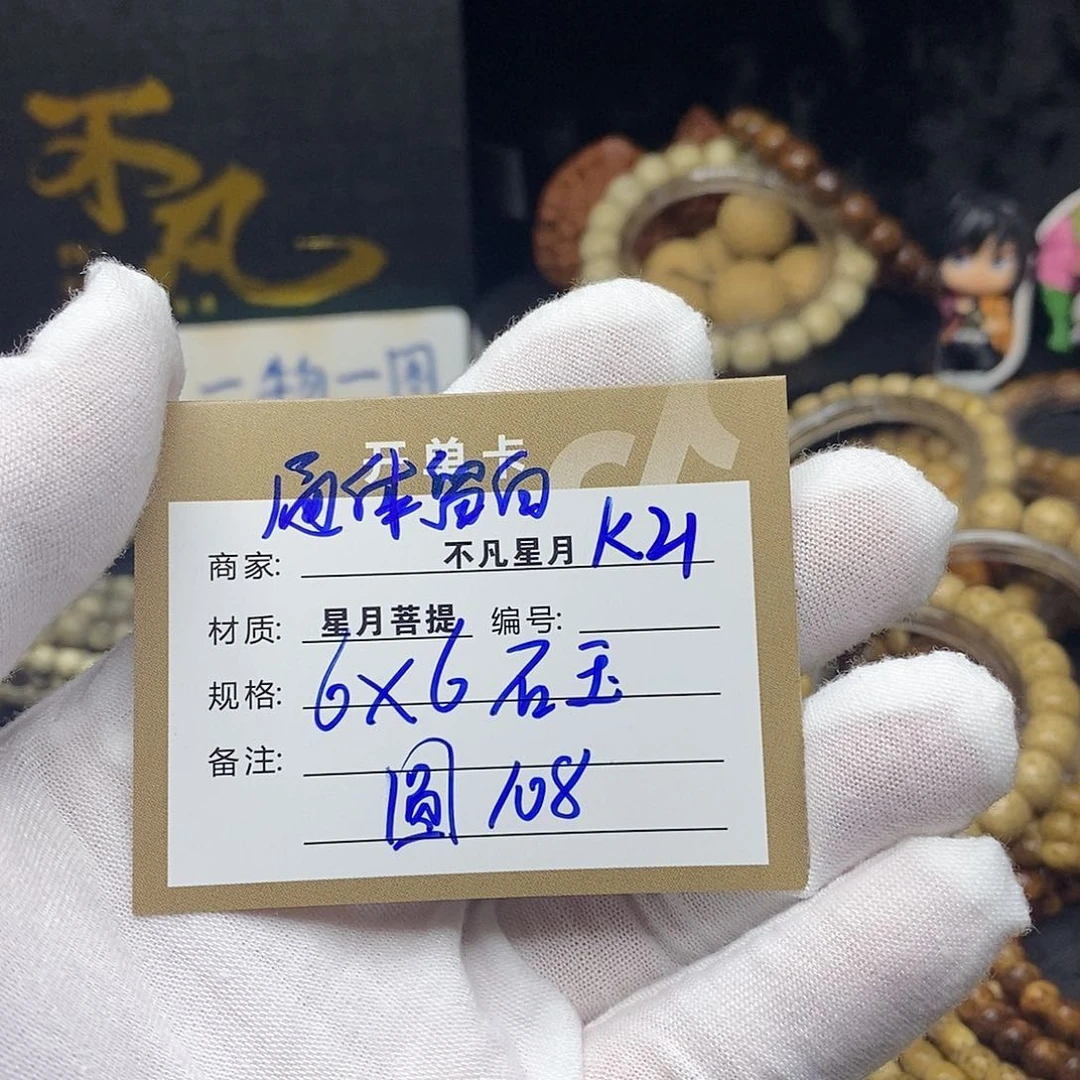 不凡
一物一图
开单卡
通体留白
商家: 不凡星月 K21
材质: 星月菩提 编号:
规格: 6×6 石玉
备注:
圆 108